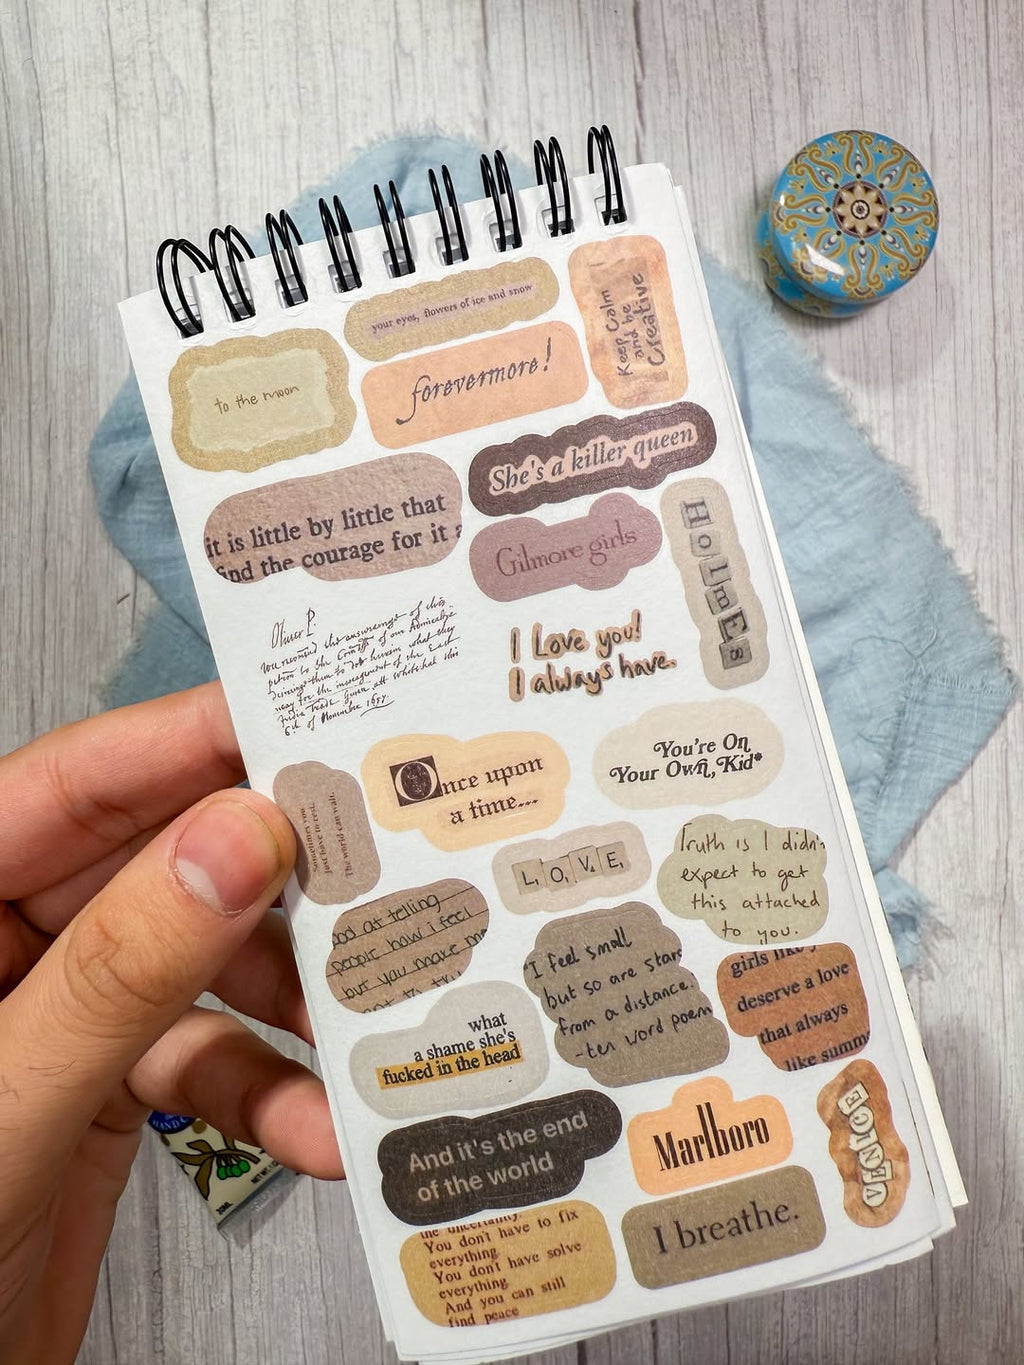 your eyes, flowers of ice and snow
Keep Calm
and be
Creative
to the moon
forevermore!
She's a killer queen
it is little by little that
find the courage for it a
Gilmore girls
HolmEs
Oliver P.
I Love you!
I always have.
6th of November 1657
Once upon
a time...
You're On
Your Own, Kid*
Sometimes you
just have to rest.
The world can wait.
L1 O1 V4 E1
Truth is I didn'
expect to get
this attached
to you.
od at telling
people how i feel
but you make me
"I feel small
but so are stars
from a distance."
-ten word poem
girls like
deserve a love
that always
like summ
what
a shame she's
fucked in the head
And it's the end
of the world
Marlboro
VENICE
the uncertainty.
You don't have to fix
everything
You don't have solve
everything
And you can still
find peace
I breathe.
HAND C